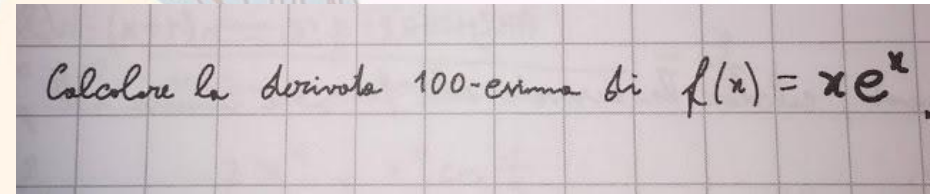 Calcolare la derivata 100-esima di f(x) = xe^x.